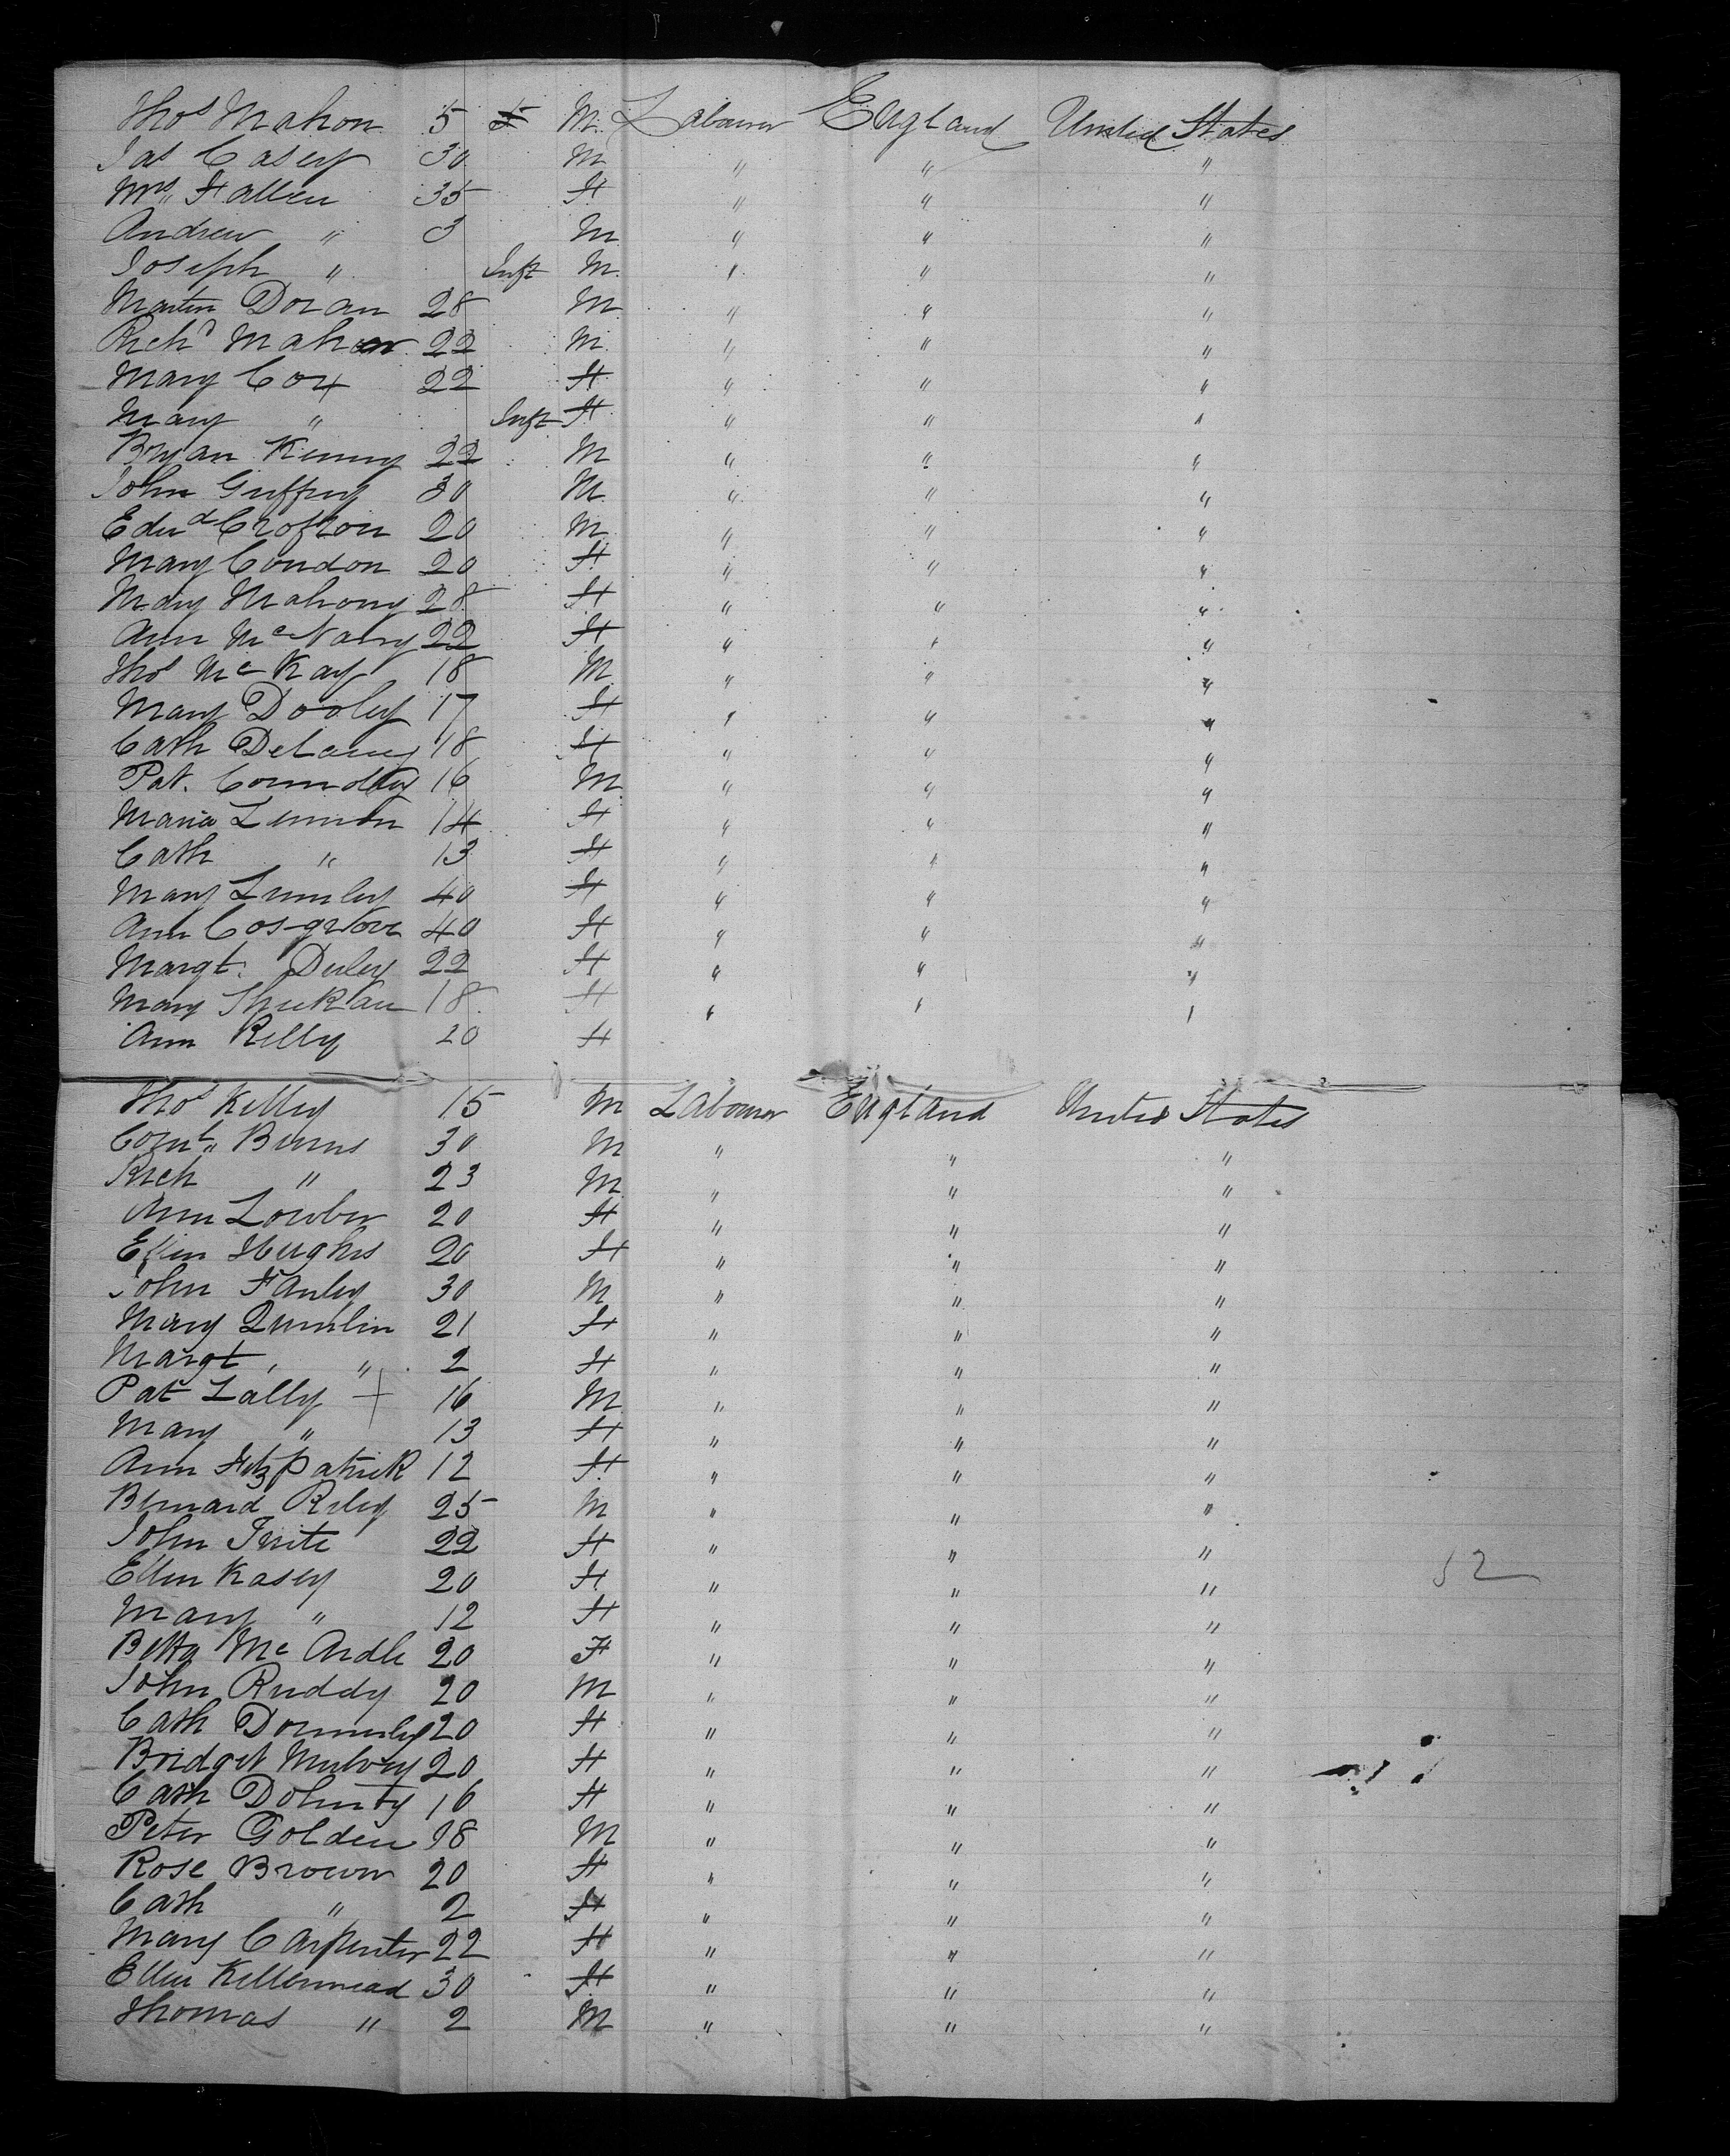 Thos Mahon 5 M. Labourer England United States
Jas Casey 30 M " " "
Mrs Fallen 35 F " " "
Andrew " 3 M " " "
Joseph " Inft M. " " "
Martin Doran 28 M " " "
Richd Mahon 22 M. " " "
Mary Cox 22 F " " "
Mary " Inft F " " "
Bryan Kenny 22 M " " "
John Guffrey 30 M. " " "
Edwd Crofton 20 M " " "
Mary Condon 20 F " " "
Mary Mahony 28 F " " "
Ann McNany 22 F " " "
Thos McKay 18 M " " "
Mary Dooley 17 F " " "
Cath Delaney 18 F " " "
Pat. Connolly 16 M " " "
Maria Lennon 14 F " " "
Cath " 13 F " " "
Mary Lumley 40 F " " "
Ann Cosgrove 40 F " " "
Margt. Duley 22 F " " "
Mary 18 F " " "
Ann Kelly 20 F
Thos Kelley 15 M Labourer England United States
Burns 30 M " " "
Rich " 23 M " " "
Ann Lowber 20 F " " "
Ellen Hughes 20 F " " "
John Fanley 30 M " " "
Mary Quinlin 21 F " " "
Margt, " 2 F " " "
Pat Lally + 16 M " " "
Mary " 13 F " " "
Ann Fitzpatrick 12 F " " "
Bernard Riley 25 M " " "
John 22 F " " "
Ellen Kasey 20 F " " " 52
Mary " 12 F " " "
McArdle 20 F " " "
John Ruddy 20 M " " "
Cath Donnerley 20 F " " "
Bridget Mulvey 20 F " " "
Cath Doherty 16 F " " "
Peter Golden 18 M " " "
Rose Brown 20 F " " "
Cath " 2 F " " "
Mary Carpenter 22 F " " "
Ellen Killenmead 30 F " " "
Thomas " 2 M " " "